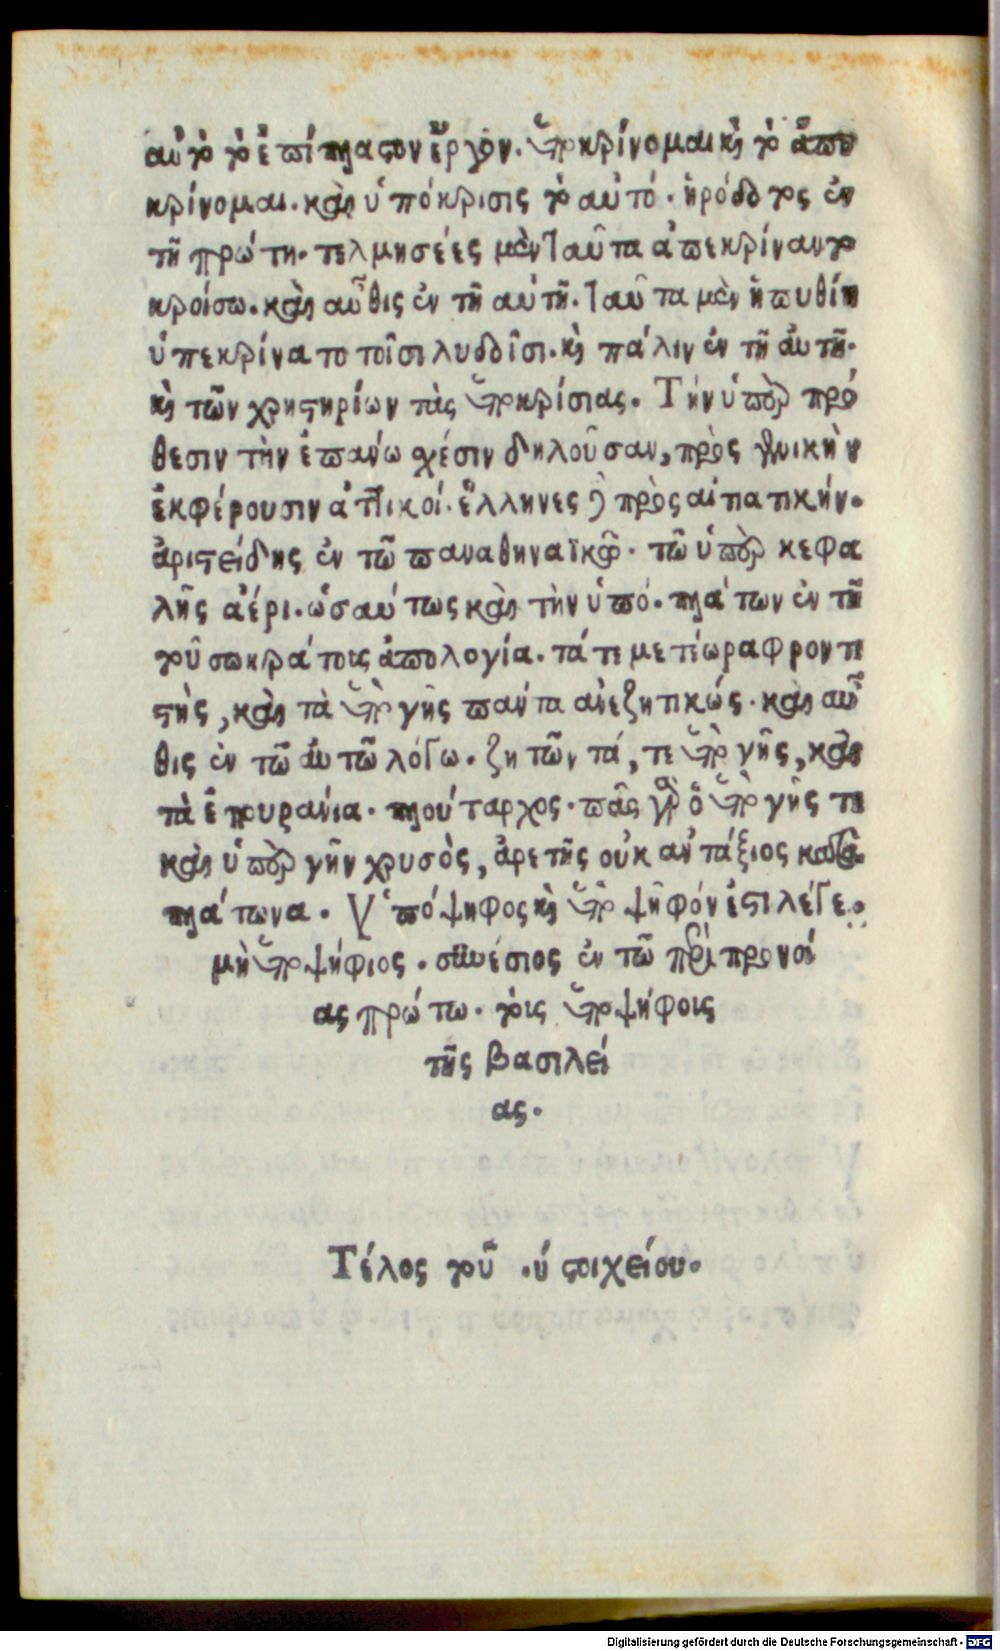 αὐτὸ τὸ ἐπίπλαστον ἔργον. ὑποκρίνομαι καὶ τὸ ἀπο
κρίνομαι. καὶ ὑπόκρισις τὸ αὐτό. ἡρόδοτος ἐν
τῇ πρώτη. τελμησέες μὲν ταῦτα ἀπεκρίναντο
κροίσω. καὶ αὖθις ἐν τῇ αὐτῇ. ταῦτα μὲν ἡ πυθίη
ὑπεκρίνατο τοῖσι λυδοῖσι. καὶ πάλιν ἐν τῇ αὐτῇ.
καὶ τῶν χρηστηρίων τὰς ὑποκρίσιας. Τὴν ὑπὲρ πρό
θεσιν τὴν ἐπάνω σχέσιν δηλοῦσαν, πρὸς γενικὴν
ἐκφέρουσιν ἀττικοί. ἕλληνες δὲ πρὸς αἰτιατικήν.
ἀριστείδης ἐν τῶ παναθηναϊκῶ. τῶ ὑπὲρ κεφα
λῆς ἀέρι. ὡσαύτως καὶ τὴν ὑπό. πλάτων ἐν τῇ
τοῦ σωκράτους ἀπολογία. τά τε μετέωρα φροντι
στὴς, καὶ τὰ ὑπὸ γῆς πάντα ἀνεζητηκώς. καὶ αὖ
θις ἐν τῶ αὐτῶ λόγω. ζητῶν τά, τε ὑπὸ γῆς, καὶ
τὰ ἐπουράνια. πλούταρχος. πᾶς γὰρ ὁ ὑπὸ γῆς τε
καὶ ὑπὲρ γῆν χρυσὸς, ἀρετῆς οὐκ ἀντάξιος κατὰ
πλάτωνα. Ὑπόψηφος καὶ ὑπὸ ψῆφόν ἐστι λέγε.
μὴ ὑποψήφιος. συνέσιος ἐν τῶ περὶ προνοί
ας πρώτω. τοῖς ὑποψήφοις
τῆς βασιλεί
ας.
Τέλος τοῦ .υ στοιχείου.
Digitalisierung gefördert durch die Deutsche Forschungsgemeinschaft - DFG